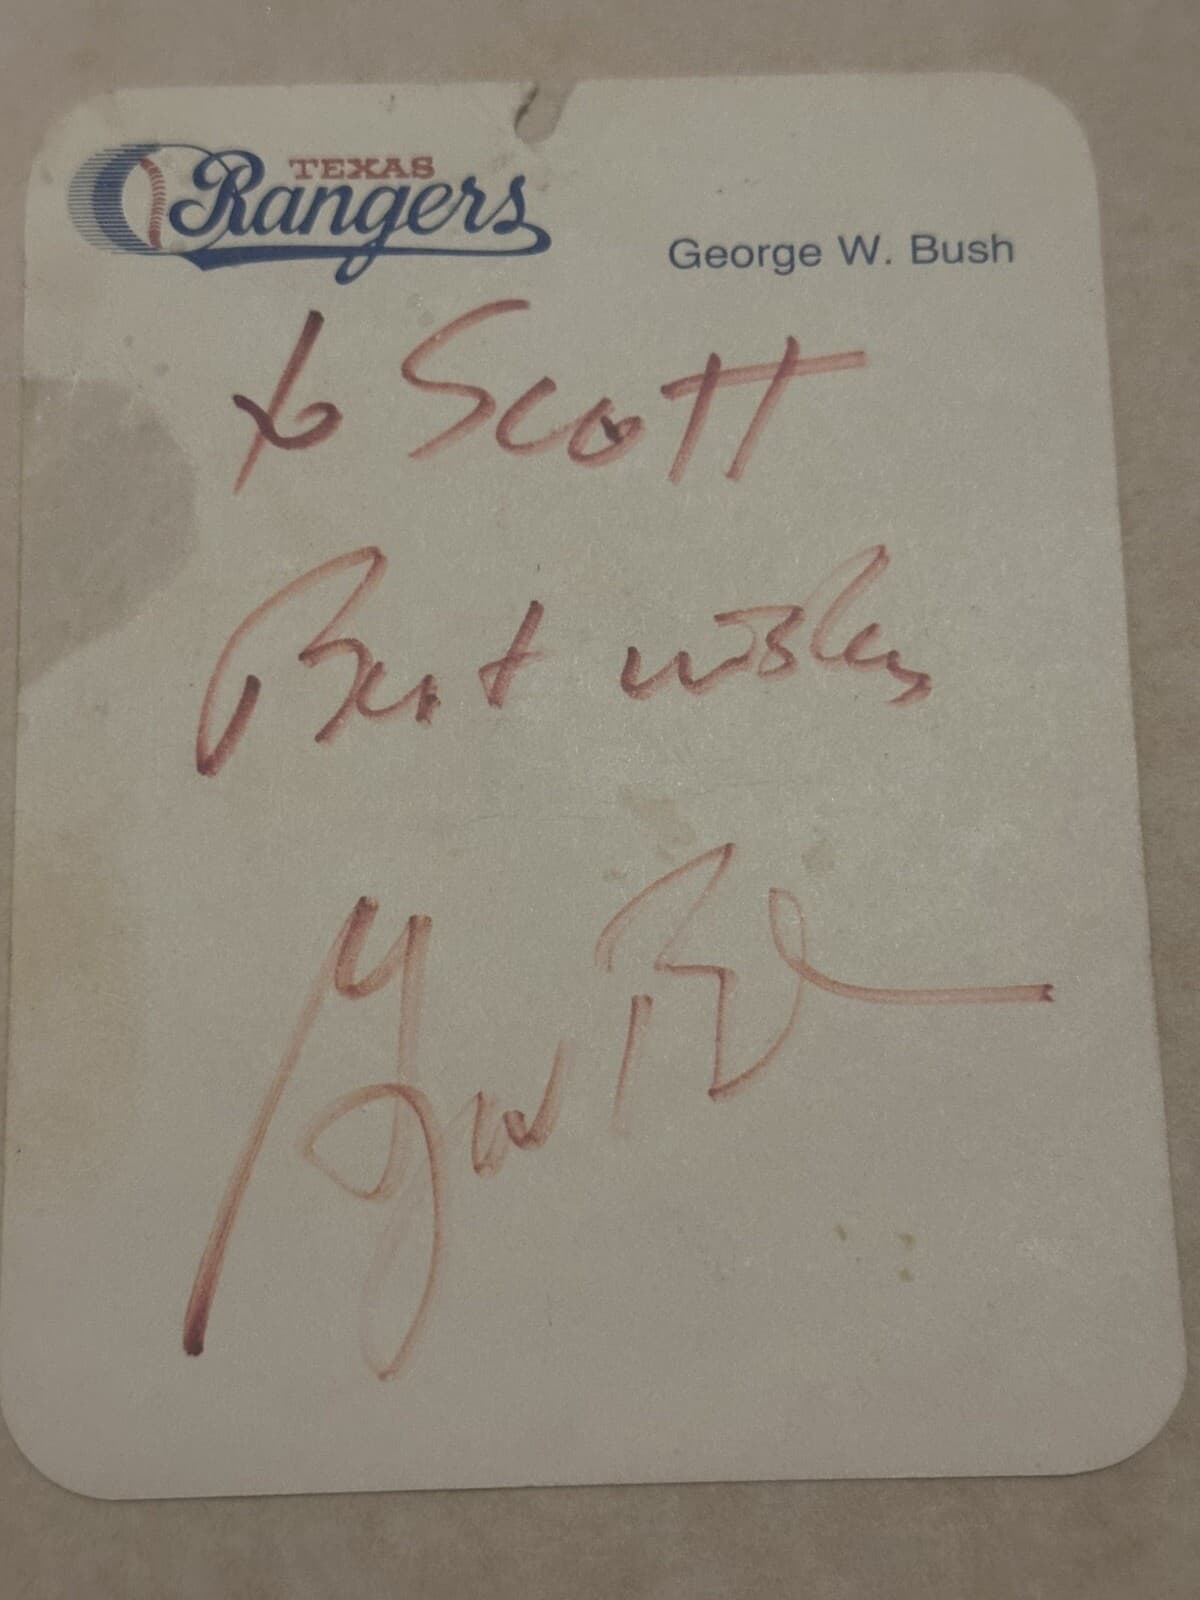 TEXAS
Rangers
George W. Bush
to Scott
Best wishes
George Bush